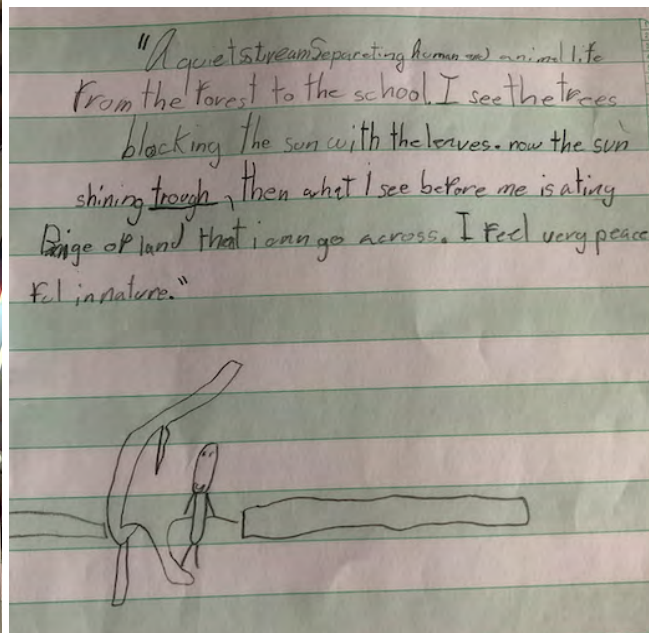 "A quiet stream Separating human and animal life
from the forest to the school. I see the trees
blocking the sun with the leaves. now the sun
shining trough, then what I see before me is a ting
of land that i cann go across. I feel very peace
ful in nature."